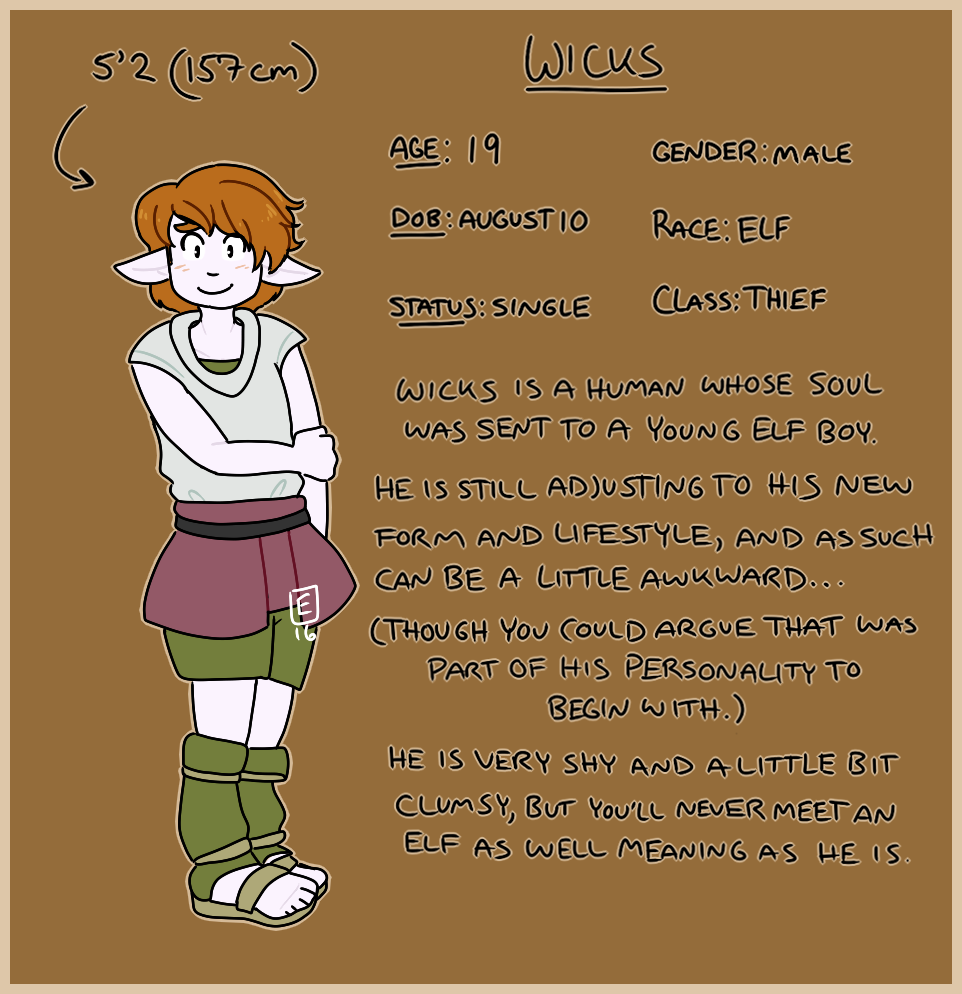 5'2 (157cm)
WICKS
AGE: 19
GENDER: MALE
DOB: AUGUST 10
RACE: ELF
STATUS: SINGLE
CLASS: THIEF
WICKS IS A HUMAN WHOSE SOUL
WAS SENT TO A YOUNG ELF BOY.
HE IS STILL ADJUSTING TO HIS NEW
FORM AND LIFESTYLE, AND AS SUCH
CAN BE A LITTLE AWKWARD...
(THOUGH YOU COULD ARGUE THAT WAS
PART OF HIS PERSONALITY TO
BEGIN WITH.)
HE IS VERY SHY AND A LITTLE BIT
CLUMSY, BUT YOU'LL NEVER MEET AN
ELF AS WELL MEANING AS HE IS.
E
16